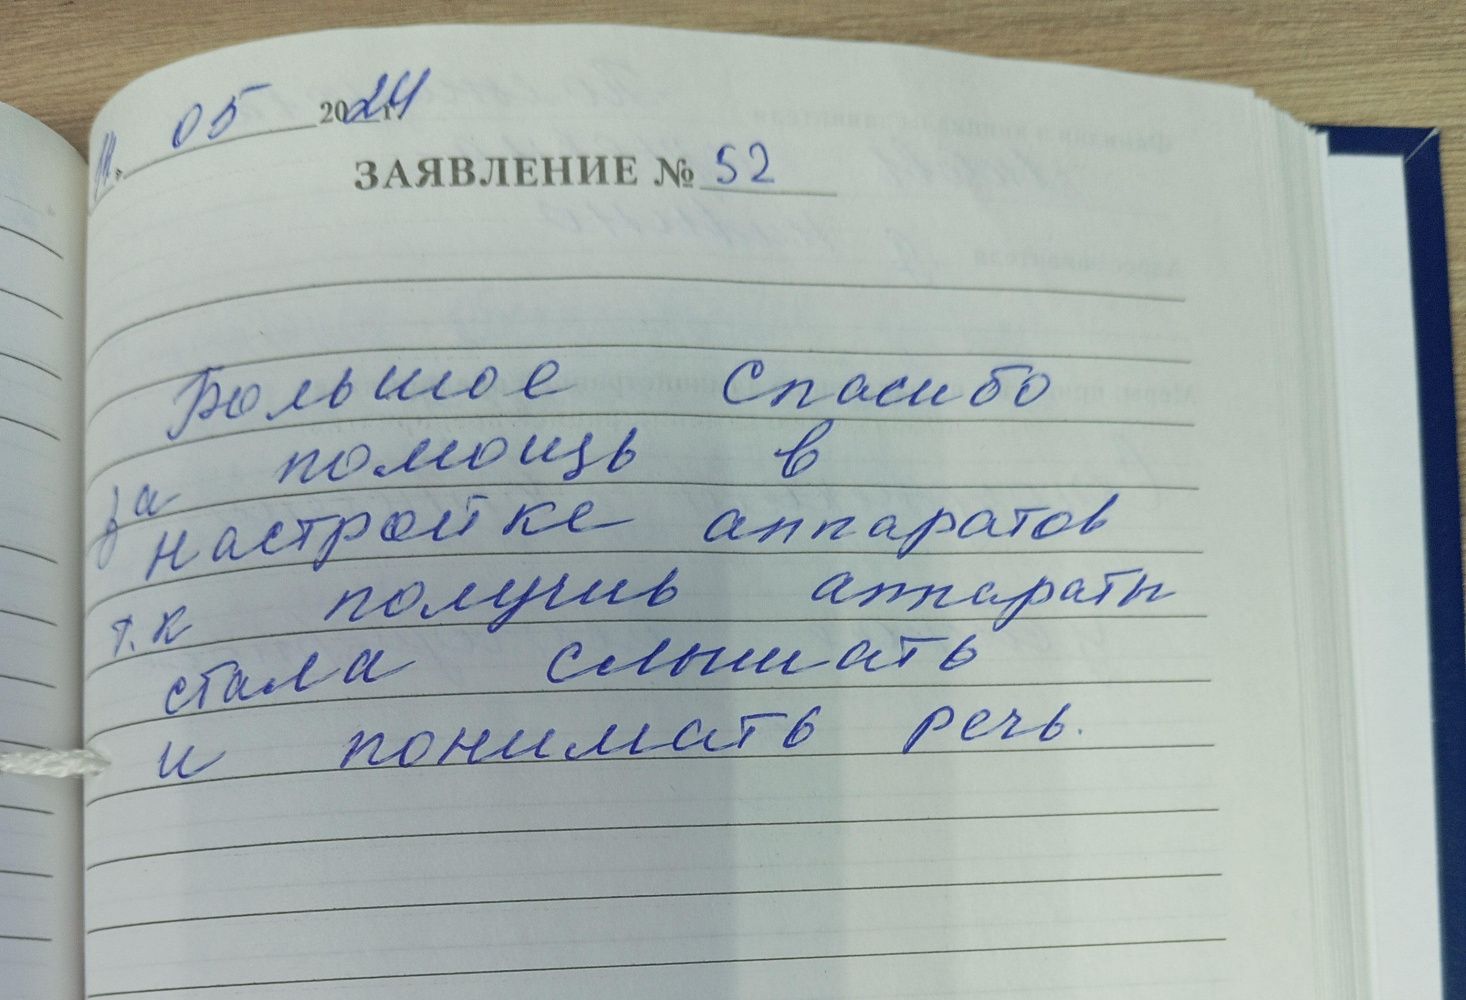 05 2024 г.
ЗАЯВЛЕНИЕ № 52
Большое Спасибо
за помощь в
настройке аппаратов
т.к получив аппараты
стала слышать
и понимать речь.